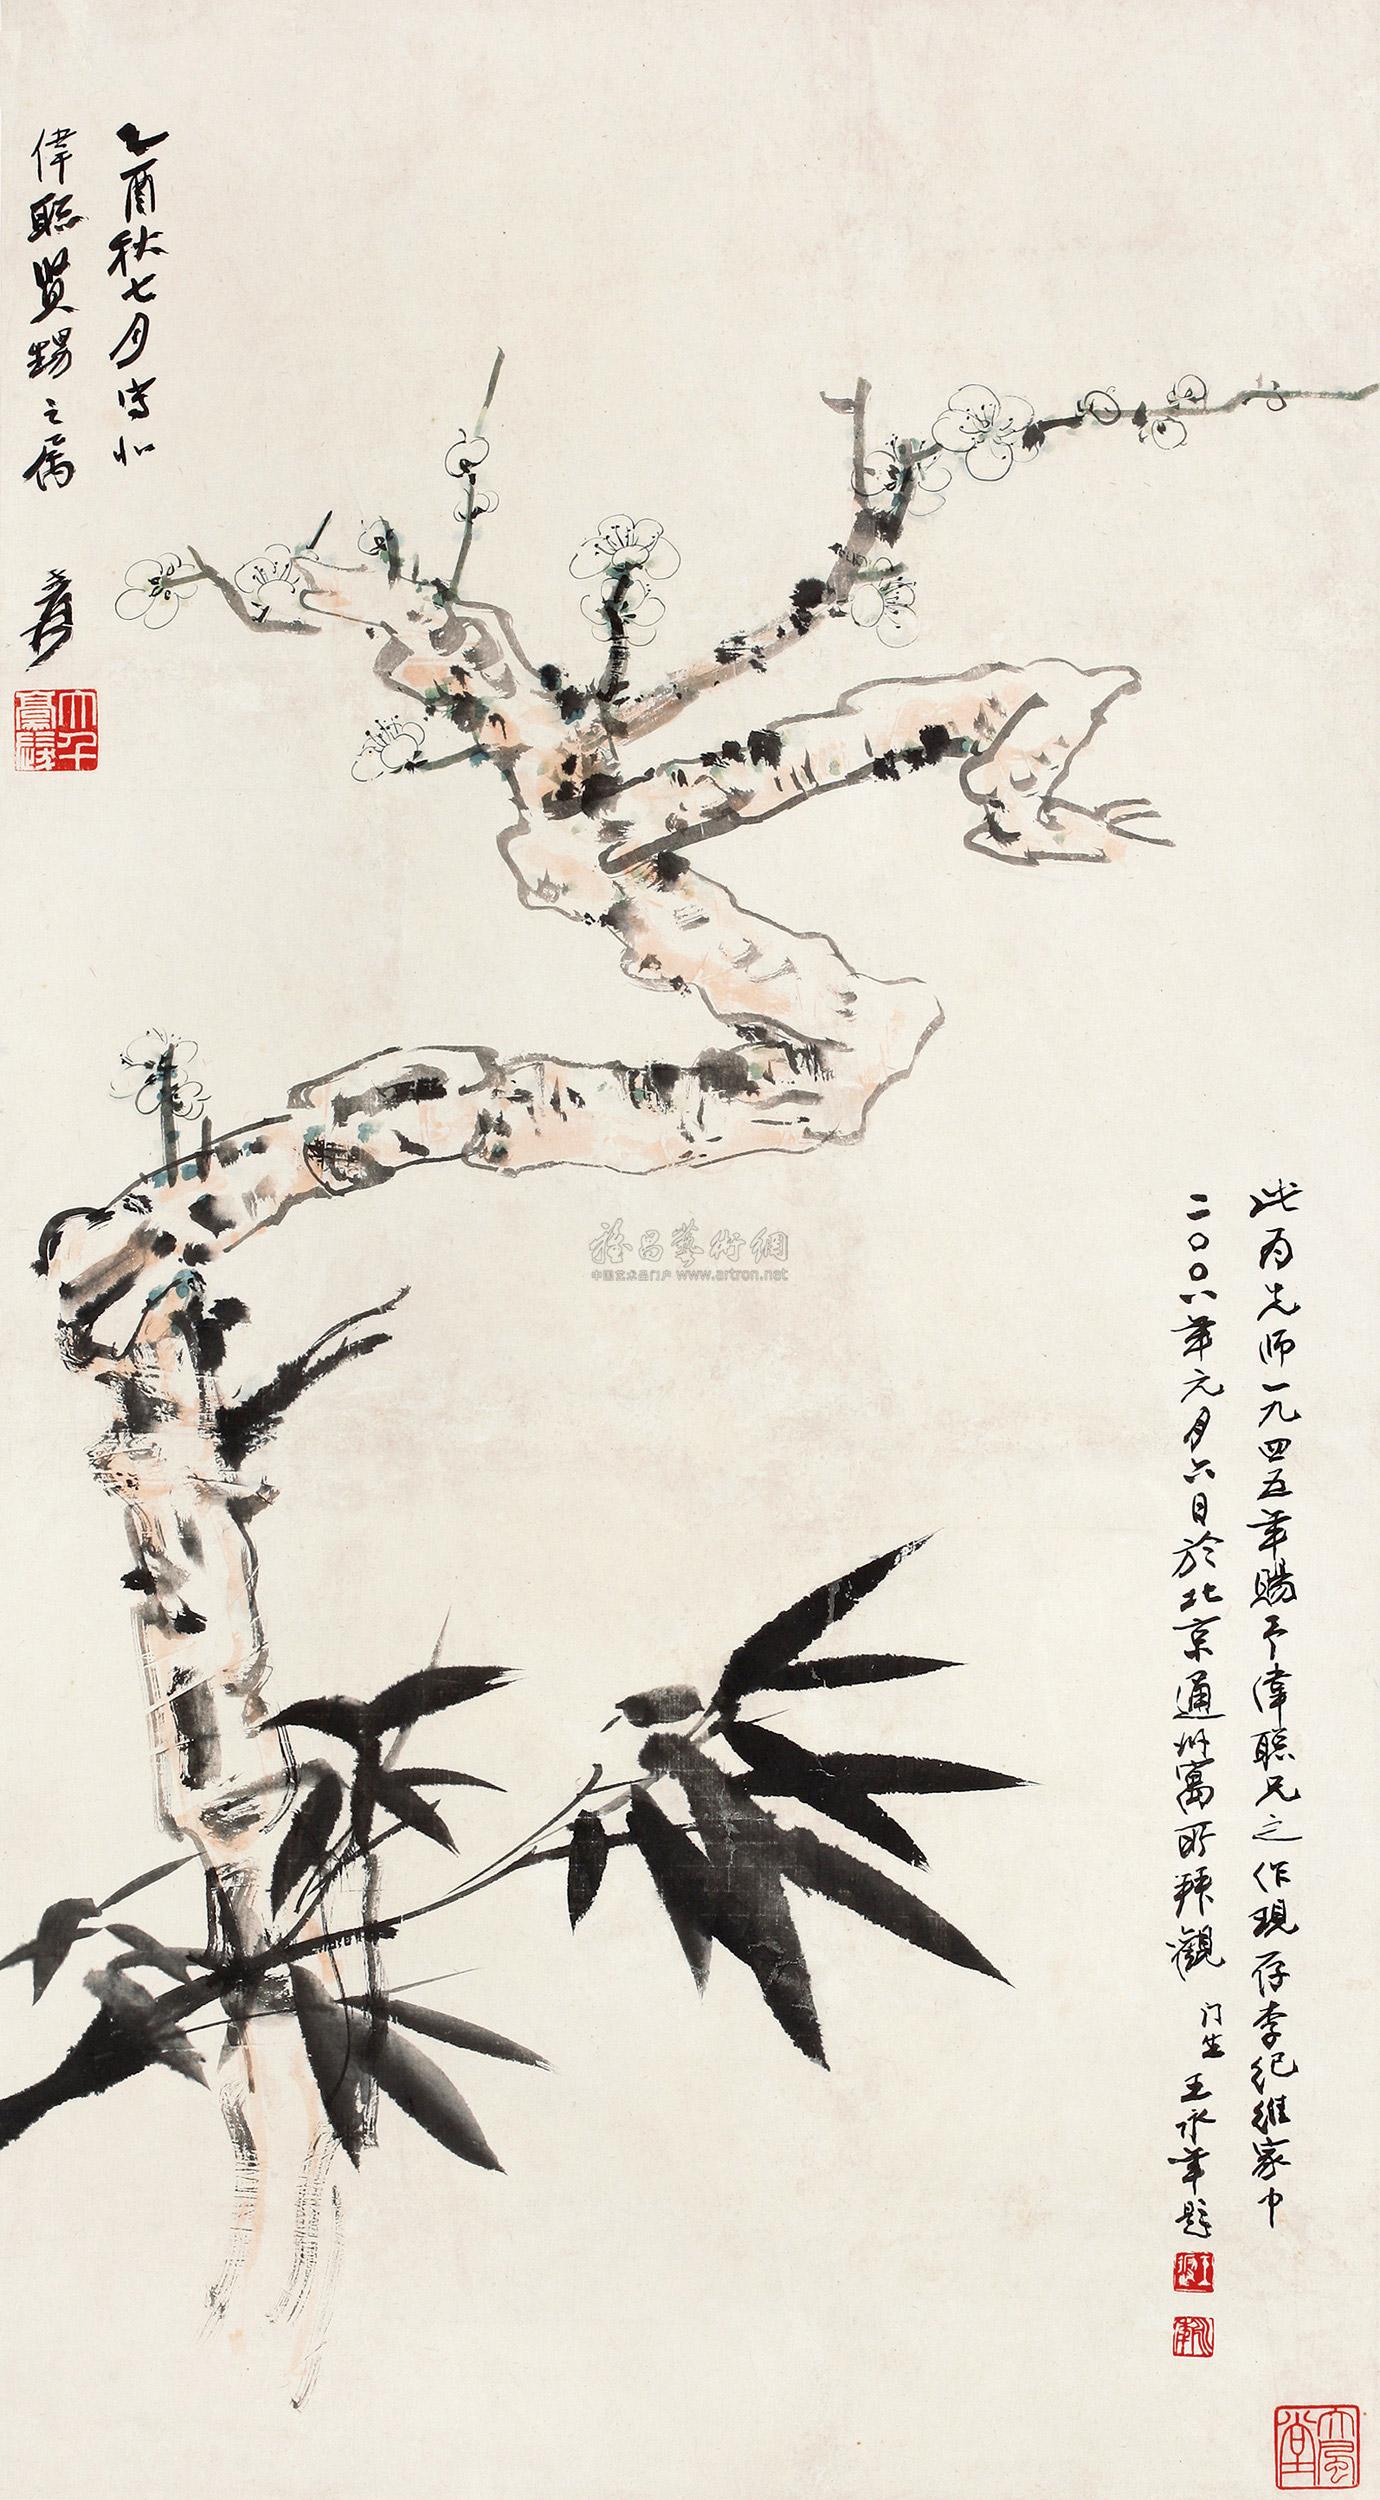 乙酉秋七月寫似
偉聰賢甥之屬
爰
大千
豪髮
此为先师一九四五年赐予偉聪兄之作现存李纪维家中
二〇〇六年元月六日於北京通州寓所拜觀 门生 王永年题
大風堂
雅昌藝術網
中国艺术品门户 www.artron.net